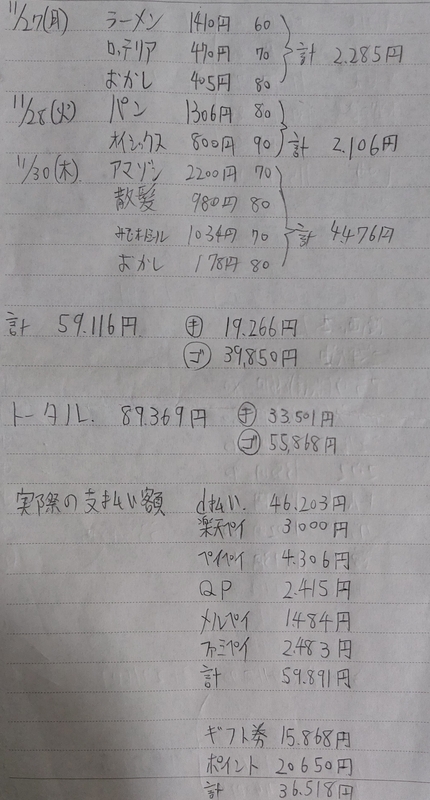 11/27(月) ラーメン 1410円 60
ロッテリア 470円 70 計 2.285円
おかし 405円 80
11/28(火) パン 1306円 80
オイシックス 800円 90 計 2.106円
11/30(木). アマゾン 2200円 70
散髪 980円 80
1034円 70 計 4.476円
おかし 178円 80
計 59.116円 ㋖ 19.266円
㋙ 39,850円
トータル. 89.369円 ㋖ 33.501円
㋙ 55,868円
実際の支払い額 d払い. 46.203円
楽天ペイ 3000円
ペイペイ 4.306円
QP 2.415円
メルペイ 1484円
ファミペイ 2.483円
計 59.891円
ギフト券 15.868円
ポイント 20650円
計 36.518円